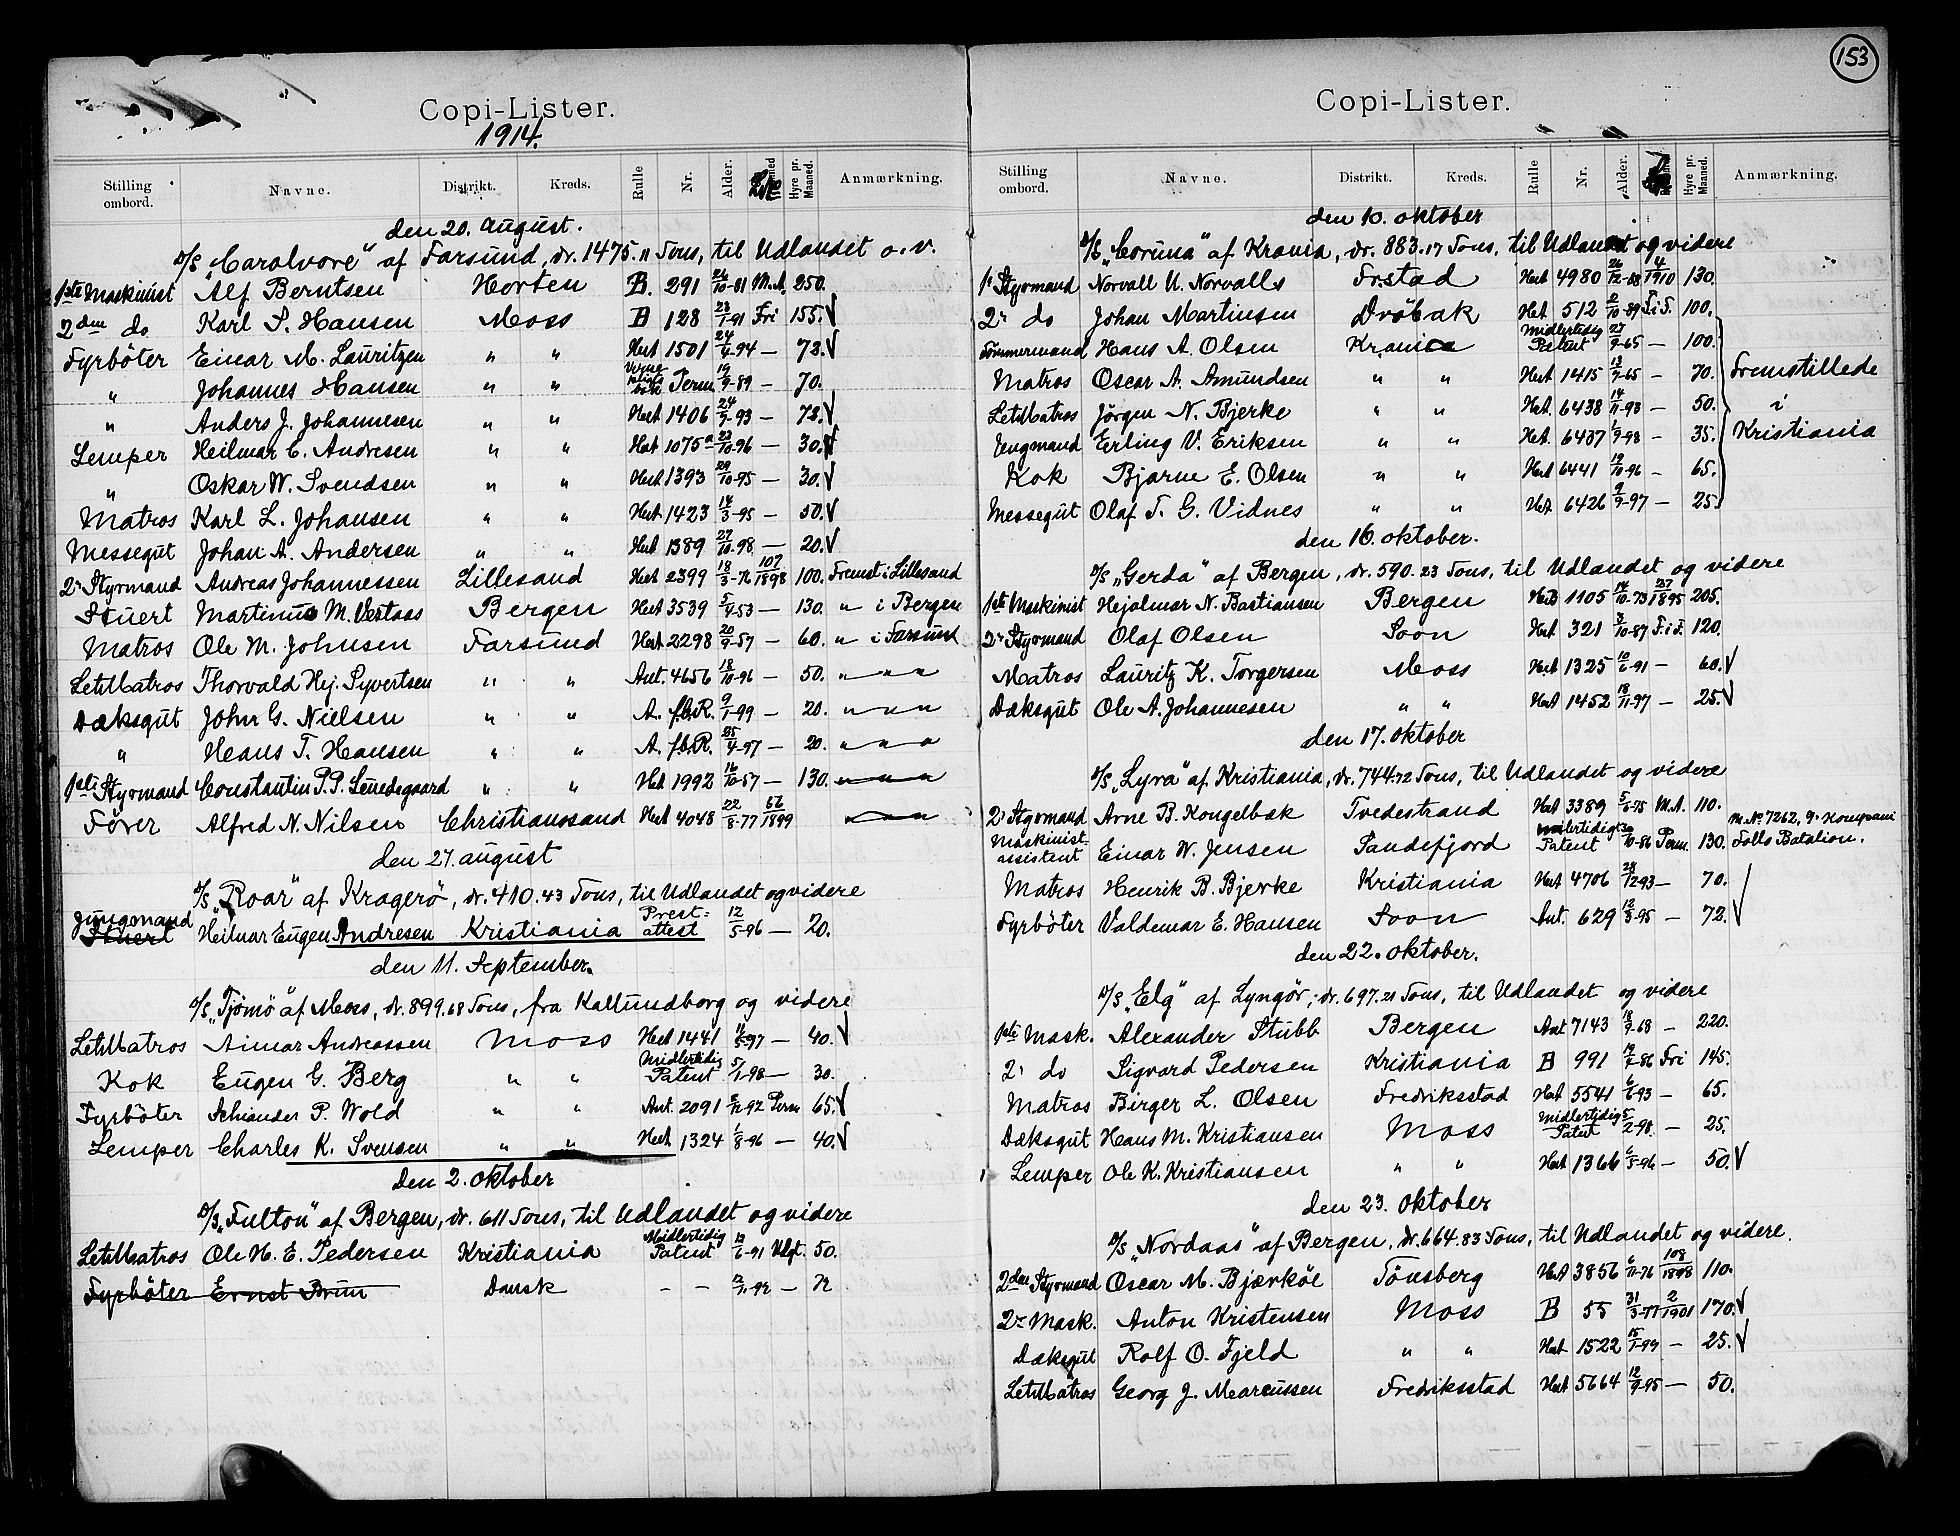 Copi-Lister.
1914.
Stilling ombord. Navne. Distrikt. Kreds. Rulle Nr. Alder. Hyre pr. Maaned. Anmærkning.
den 20. august.
D/S „Caralvore" af Farsund, dr. 1475.11 Tons, til Udlandet o. v.
1ste Maskinist Alf Berntsen Horten B. 291 26/10-81 M.A. 250.
2den do Karl P. Hansen Moss B 128 23/1-91 Fri 155. √
Fyrböter Einar M. Lauritzen „ „ Hert 1501 24/4-94 — 73. √
„ Johannes Hansen „ „ Perm 19/9-89 — 70.
„ Anders J. Johannesen „ „ Hert 1406 24/9-93 — 73. √
Lemper Heilmar C. Andresen „ „ Hert 1075a 23/10-96 — 30. √
„ Oskar W. Svendsen „ „ Hert 1393 29/10-95 — 30. √
Matros Karl L. Johansen „ „ Hert 1423 14/3-95 — 50. √
Messegut Johan A. Andersen „ „ Hert 1389 27/10-98 — 20. √
2. Styrmand Andreas Johannessen Lillesand Hert 2399 18/3-76 107/1898 100. Fremst. i Lillesand
Stuert Martinus M. Vestaas Bergen Hert 3539 5/4-53 — 130. „ i Bergen
Matros Ole M. Johnsen Farsund Hert 2298 20/9-57 — 60. „ i Farsund
LetMatros Thorvald Hej. Syvertsen „ „ Ant. 4656 18/10-96 — 50. „ „ „
Dæksgut John G. Nielsen „ „ A. f.b.R. 9/1-99 — 20. „ „ „
„ Hans T. Hansen „ „ A. f.b.R. 25/4-97 — 20. „ „ „
1ste Styrmand Constantin P.P. Lundegaard „ „ Hert 1992 16/10-57 — 130. „ „ „
Fører Alfred N. Nilsen Christianssand Hert 4048 22/8-77 56/1899 „ „
den 27. august
D/S „Roar" af Kragerö, dr. 410.43 Tons, til Udlandet og videre
Jungmand
Stuert Heilmar Eugen Andresen Kristiania Prest-attest 12/5-96 — 20.
den 11. September.
D/S „Tjömö" af Moss, dr. 899.68 Tons, fra Kallundborg og videre
LetMatros Aimar Andreassen Moss Hert 1441 11/5-97 — 40. √
Kok Eugen G. Berg „ „ Midlertidig Patent 5/1-98 — 30.
Fyrböter Schiander P. Wold „ „ Ant. 2091 8/12-92 Perm 65. √
Lemper Charles K. Svensen „ „ Hert 1324 1/8-96 — 40. √
den 2. oktober
D/S „Fulton" af Bergen, dr. 611 Tons, til Udlandet og videre
LetMatros Ole H. E. Pedersen Kristiania Midlertidig Patent 19/6-91 Udgt. 50.
Fyrböter Ernst Brun Dansk — —
153
Copi-Lister.
Stilling ombord. Navne. Distrikt. Kreds. Rulle Nr. Alder. Hyre pr. Maaned. Anmærkning.
den 10. oktober
D/S „Coruna" af Krania, dr. 883.17 Tons, til Udlandet og videre
1. Styrmand Norvall U. Norvalls Fr.stad Hert 4980 26/12-88 4/1910 130.
2. do Johan Martinsen Dröbak Hert. 512 2/10-89 F.i.F. 100.
Tømmermand Hans A. Olsen Krania Midlertidig Patent 27/9-65 — 100.
Matros Oscar A. Amundsen „ „ Hert 1415 13/7-65 — 70. Fremstillede
LetMatros Jörgen N. Bjerke „ „ Hert. 6438 14/11-93 — 50. i
Jungmand Erling V. Eriksen „ „ Hert. 6437 1/9-98 — 35. Kristiania
Kok Bjarne E. Olsen „ „ Hert 6441 19/10-96 — 65.
Messegut Olaf T. G. Vidnes „ „ Hert. 6426 9/9-97 — 25.
den 16. oktober.
D/S „Gerda" af Bergen, dr. 590.23 Tons, til Udlandet og videre
1ste Maskinist Hejalmar N. Bastiansen Bergen HertB 1105 14/10-73 237/1895 205.
2. Styrmand Olaf Olsen Soon Hert. 321 3/10-87 F.i.F. 120.
Matros Lauritz K. Torgersen Moss Hert 1325 10/6-91 — 60. √
Dæksgut Ole A. Johannesen „ „ Hert 1452 18/11-97 — 25. √
den 17. oktober
D/S „Lyra" af Kristiania, dr. 744.72 Tons, til Udlandet og videre
2. Styrmand Arne B. Kongelbæk Tvedestrand Hert 3389 5/5-75 M.A. 110.
Maskinist-assistent Einar W. Jensen Sandefjord Midlertidig Patent 30/10-86 Perm. 130. M. No. 7262, 9. Kompani Follo Batalion.
Matros Henrik B. Bjerke Kristiania Hert 4706 28/12-93 — 70.
Fyrböter Valdemar E. Hansen Soon Ant. 629 12/8-95 — 72. √
den 22. oktober.
D/S „Elg" af Lyngör, dr. 697.21 Tons, til Udlandet og videre
1ste Mask. Alexander Stubb Bergen Ant 7143 18/9-68 — 220.
2. do Sigvard Pedersen Kristiania B 991 19/2-86 Fri 145.
Matros Birger L. Olsen Fredriksstad Hert 5541 6/6-93 — 65.
Dæksgut Hans M. Kristiansen Moss Midlertidig Patent 5/2-98 — 25.
Lemper Ole K. Kristiansen „ „ Hert 1366 6/5-96 — 50. √
den 23. oktober
D/S „Nordaas" af Bergen, dr. 664.83 Tons, til Udlandet og videre.
2den Styrmand Oscar M. Bjærköe Tönsberg Hert 3856 6/11-76 108/1898 110.
2. Mask. Anton Kristensen Moss B 55 31/3-77 2/1901 170. √
Dæksgut Rolf O. Fjeld „ „ Hert 1522 15/1-99 — 25. √
LetMatros Georg J. Marcussen Fredriksstad Hert 5664 12/9-95 — 50.